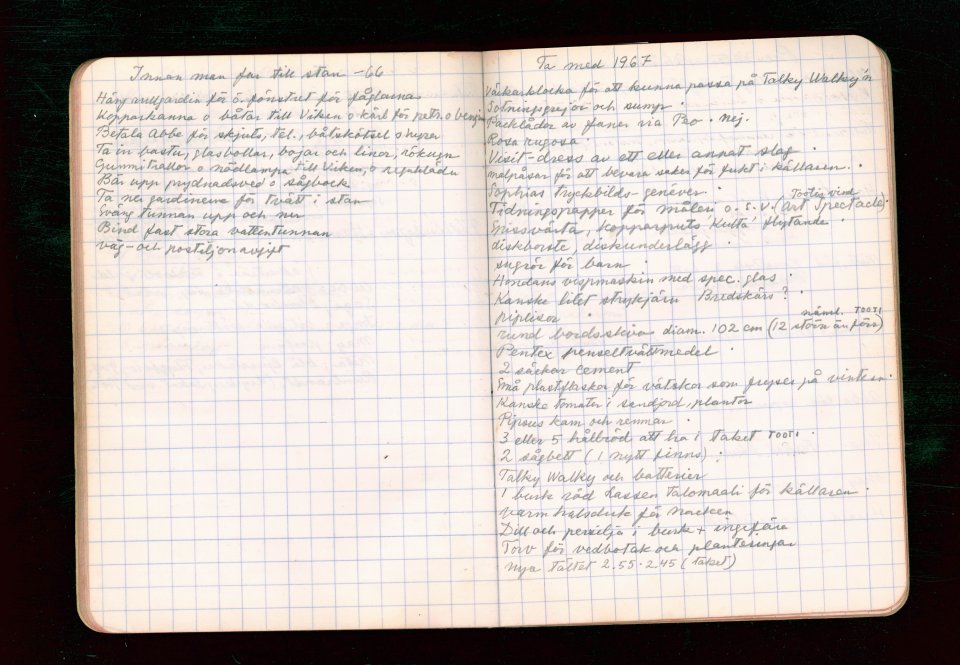 Innan man far till stan -66
Häng rullgardin för ö. fönstret för fåglarna
Kopparkanna o båtar till Viken o kärl för petr. o bensin
Betala Abbe för skjuts, tel., båtskötsel o hyra
Ta in bastu, glasbollar, bojar och linor, rökugn
Gummitrallor o nödlampa till Viken, o regnkläder
Bär upp prydnadsved o sågbock
Ta ner gardinerna för tvätt i stan
Sväng tunnan upp och ner
Bind fast stora vattentunnan
väg- och postiljonavgift
Ta med 1967
Väckarklocka för att kunna passa på Talky Walky'n
Sotningsgrejor och sump.
Packlådor av faner via Peo. nej.
Rosa rugosa.
Visit-dress av ett eller annat slag.
malpåsar för att bevara saker för fukt i källaren.
Sophias tryckbilds genéver.
Tootis vind
Tidningspapper för måleri o.s.v. (Art Spectacle).
missvårta, kopparputs Kulta flytande
diskborste, diskunderlägg
sugrör för barn
Hondans vispmaskin med spec. glas
Kanske litet strykjärn Bredskärs?
piplisor
näml. TOOTI
rund bordsskiva diam. 102 cm (12 större än förr)
Pentex penseltvättmedel
2 säckar cement
Små plastflaskor för vätskor som fryser på vintern.
Kanske tomater i sandjord, plantor
Pipsus kam och remmar
3 eller 5 hållröd att ha i taket TOOTI
2 sågbett (1 nytt finns)
Talky Walky och batterier
1 burk röd Lassen Talomaali för källaren
varm halsduk för nacken
Dill och persilja i burk + ingefära
Torv för vedbotak och planteringar
nya tältet 2.55 · 2.45 (taket)